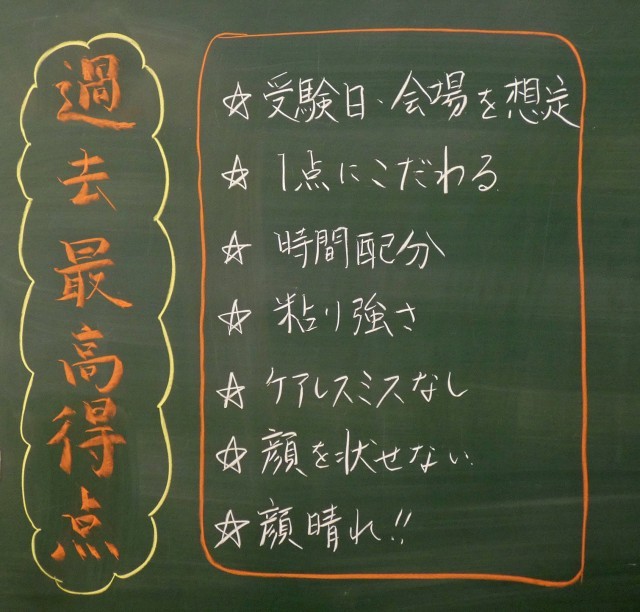 過去最高得点
☆受験日、会場を想定
☆1点にこだわる
☆時間配分
☆粘り強さ
☆ケアレスミスなし
☆顔を状せない
☆顔晴れ!!